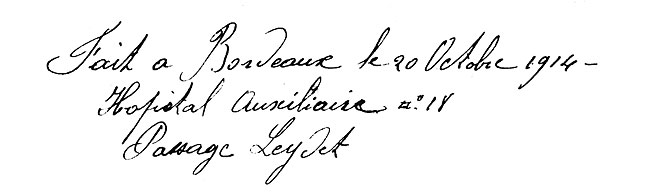 Fait a Bordeaux le 20 Octobre 1914 –
Hopital Auxiliaire n° 18
Passage Leydet